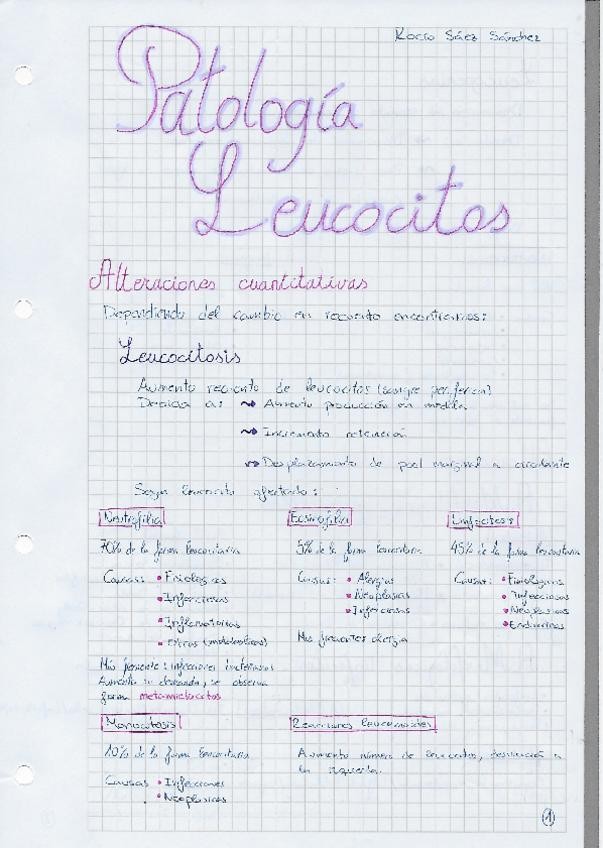 Rocío Sáez Sánchez
Patología
Leucocitos
Alteraciones cuantitativas
Dependiendo del cambio en recuento encontramos:
Leucocitosis
Aumento recuento de leucocitos (sangre periférica)
Debida a: ⤳ Aumento producción en médula
⤳ Incremento retención
⤳ Desplazamiento de pool marginal a circulante
Según leucocito afectado:
Neutrofilia
70% de la fórmula leucocitaria
Causas: • Fisiológicas
• Infecciosas
• Inflamatorias
• Otras (metabólicas)
Más frecuente: infecciones bacterianas
Aumenta su demanda, se observa
forma metamielocitos
Eosinofilia
5% de la fórmula leucocitaria
Causas: • Alergias
• Neoplasias
• Infecciosas
Más frecuentes alergia
Linfocitosis
45% de la fórmula leucocitaria
Causas: • Fisiológicas
• Infecciosas
• Neoplasias
• Endocrinas
Monocitosis
10% de la fórmula leucocitaria
Causas • Infecciones
• Neoplasias
Reacciones leucemoides
Aumento número de leucocitos, desviación a
la izquierda.
1